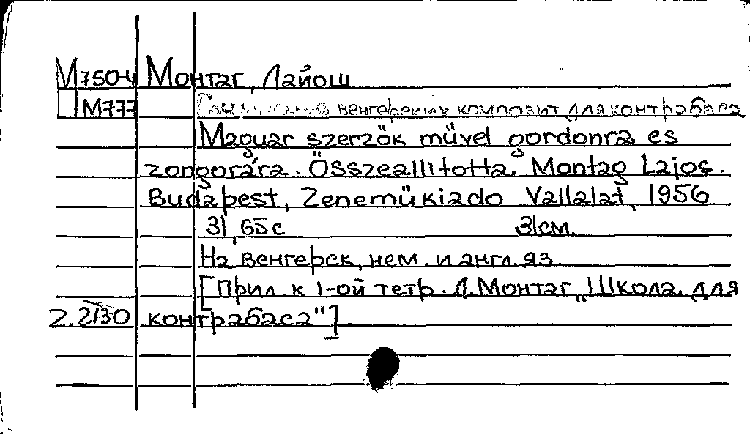 М7504 Монтаг, Лайош
М777 венгерских композит для контрабаса
Magyar szerzök müvei gordonra es
zongorára. Összeallitotta. Montag Lajos.
Budapest, Zenemükiado Vallalat, 1956
31, 65 с 31см.
На венгерск, нем. и англ. яз.
[Прил. к 1-ой тетр. Л. Монтаг „Школа для
2.2130 контрабаса"]